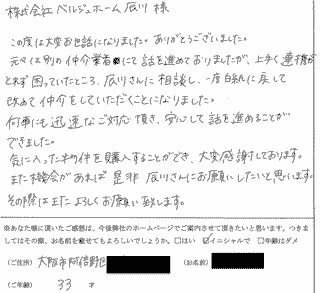 株式会社ベルジュホーム 辰川 様
この度は大変お世話になりました。ありがとうございました。
元々は別の仲介業者にて話を進めておりましたが、上手く連携が
とれず困っていたところ、辰川さんに相談し、一度白紙に戻して
改めて仲介をしていただくことになりました。
何事にも迅速なご対応頂き、安心して話を進めることが
できました。
気に入った物件を購入することができ、大変感謝しております。
また機会があれば是非 辰川さんにお願いしたいと思います。
その際はまたよろしくお願い致します。
※あなた様に頂いたご感想は、今後弊社のホームページでご案内させて頂きたいと思います。つきま
してはその際、お名前を載せてもよろしいでしょうか。□はい ☑イニシャルで □年齢はダメ
(ご住所) 大阪市阿倍野区 (お名前)
(ご年齢) 33 才